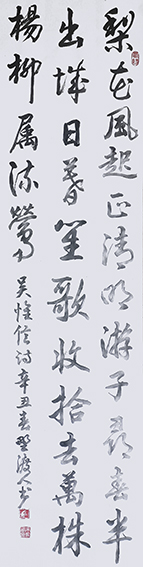 梨花風起正清明游子尋春半
出城日暮笙歌收拾去萬株
楊柳属流鶯
吴惟信詩辛丑春野渡人书